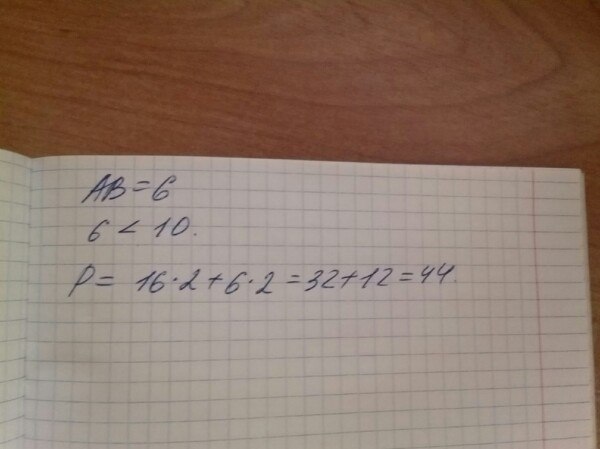 AB=6
6 < 10.
P= 16·2+6·2=32+12=44.